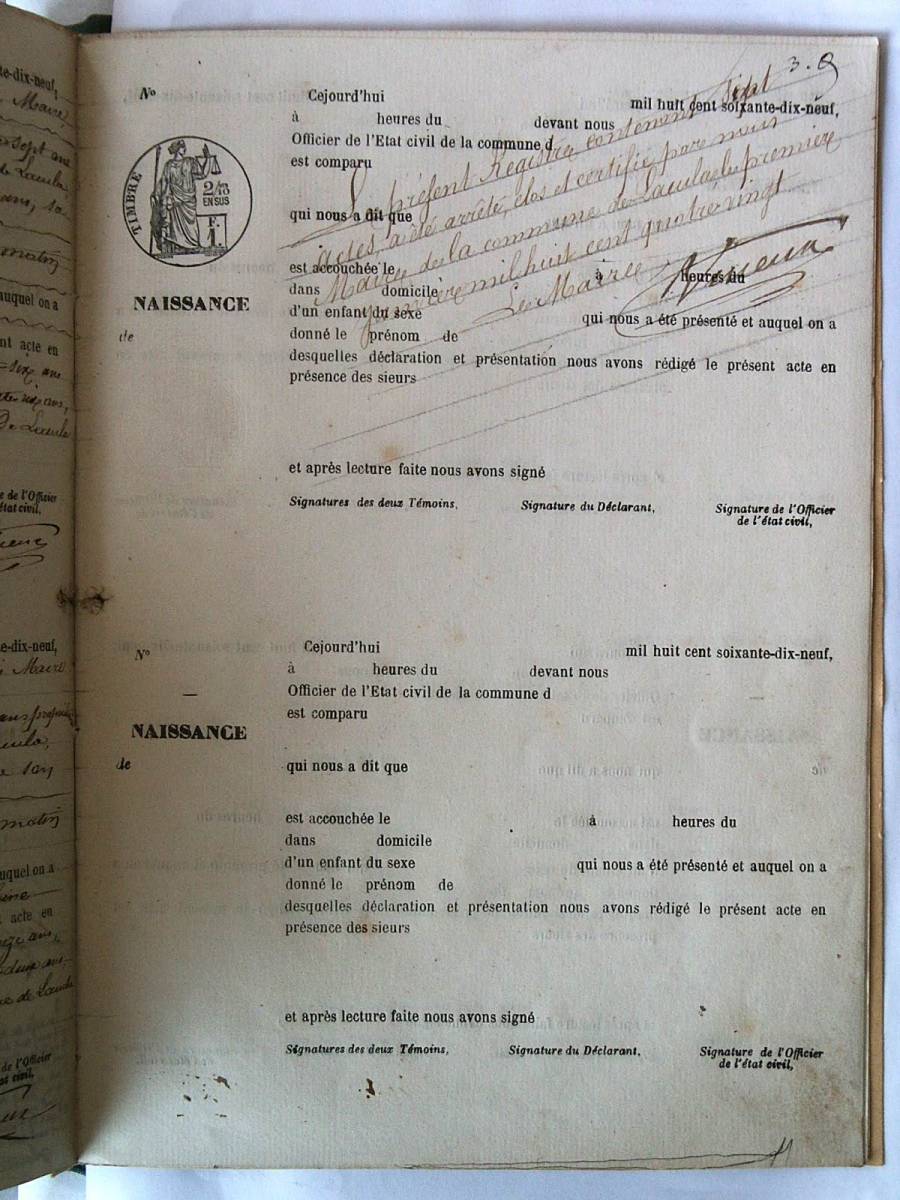 te-dix-neuf,
Maire,
sept ans
de Lacula
ans, sa
matin
auquel on a
nt acte en
six ans
De Lacula
e de l'Officier
état civil,
3.
No
Cejourd'hui mil huit cent soixante-dix-neuf,
à heures du devant nous
Officier de l'Etat civil de la commune d
est comparu
TIMBRE
2/10
EN SUS
F.
1.
qui nous a dit que
Le présent Registre contenant sept
actes a été arrêté, clos et certifié par nous
Maire de la commune de première
janvier mil huit cent quatre vingt
Le Maire
est accouchée le à heures du
NAISSANCE
dans domicile
d'un enfant du sexe qui nous a été présenté et auquel on a
de
donné le prénom de
desquelles déclaration et présentation nous avons rédigé le présent acte en
présence des sieurs
et après lecture faite nous avons signé
Signatures des deux Témoins, Signature du Déclarant, Signature de l'Officier
de l'état civil,
te-dix-neuf,
Maire
matin
auquel on a
acte en
de l'Officier
at civil,
No
Cejourd'hui mil huit cent soixante-dix-neuf,
à heures du devant nous
Officier de l'Etat civil de la commune d
est comparu
NAISSANCE
de
qui nous a dit que
est accouchée le à heures du
dans domicile
d'un enfant du sexe qui nous a été présenté et auquel on a
donné le prénom de
desquelles déclaration et présentation nous avons rédigé le présent acte en
présence des sieurs
et après lecture faite nous avons signé
Signatures des deux Témoins, Signature du Déclarant, Signature de l'Officier
de l'état civil,